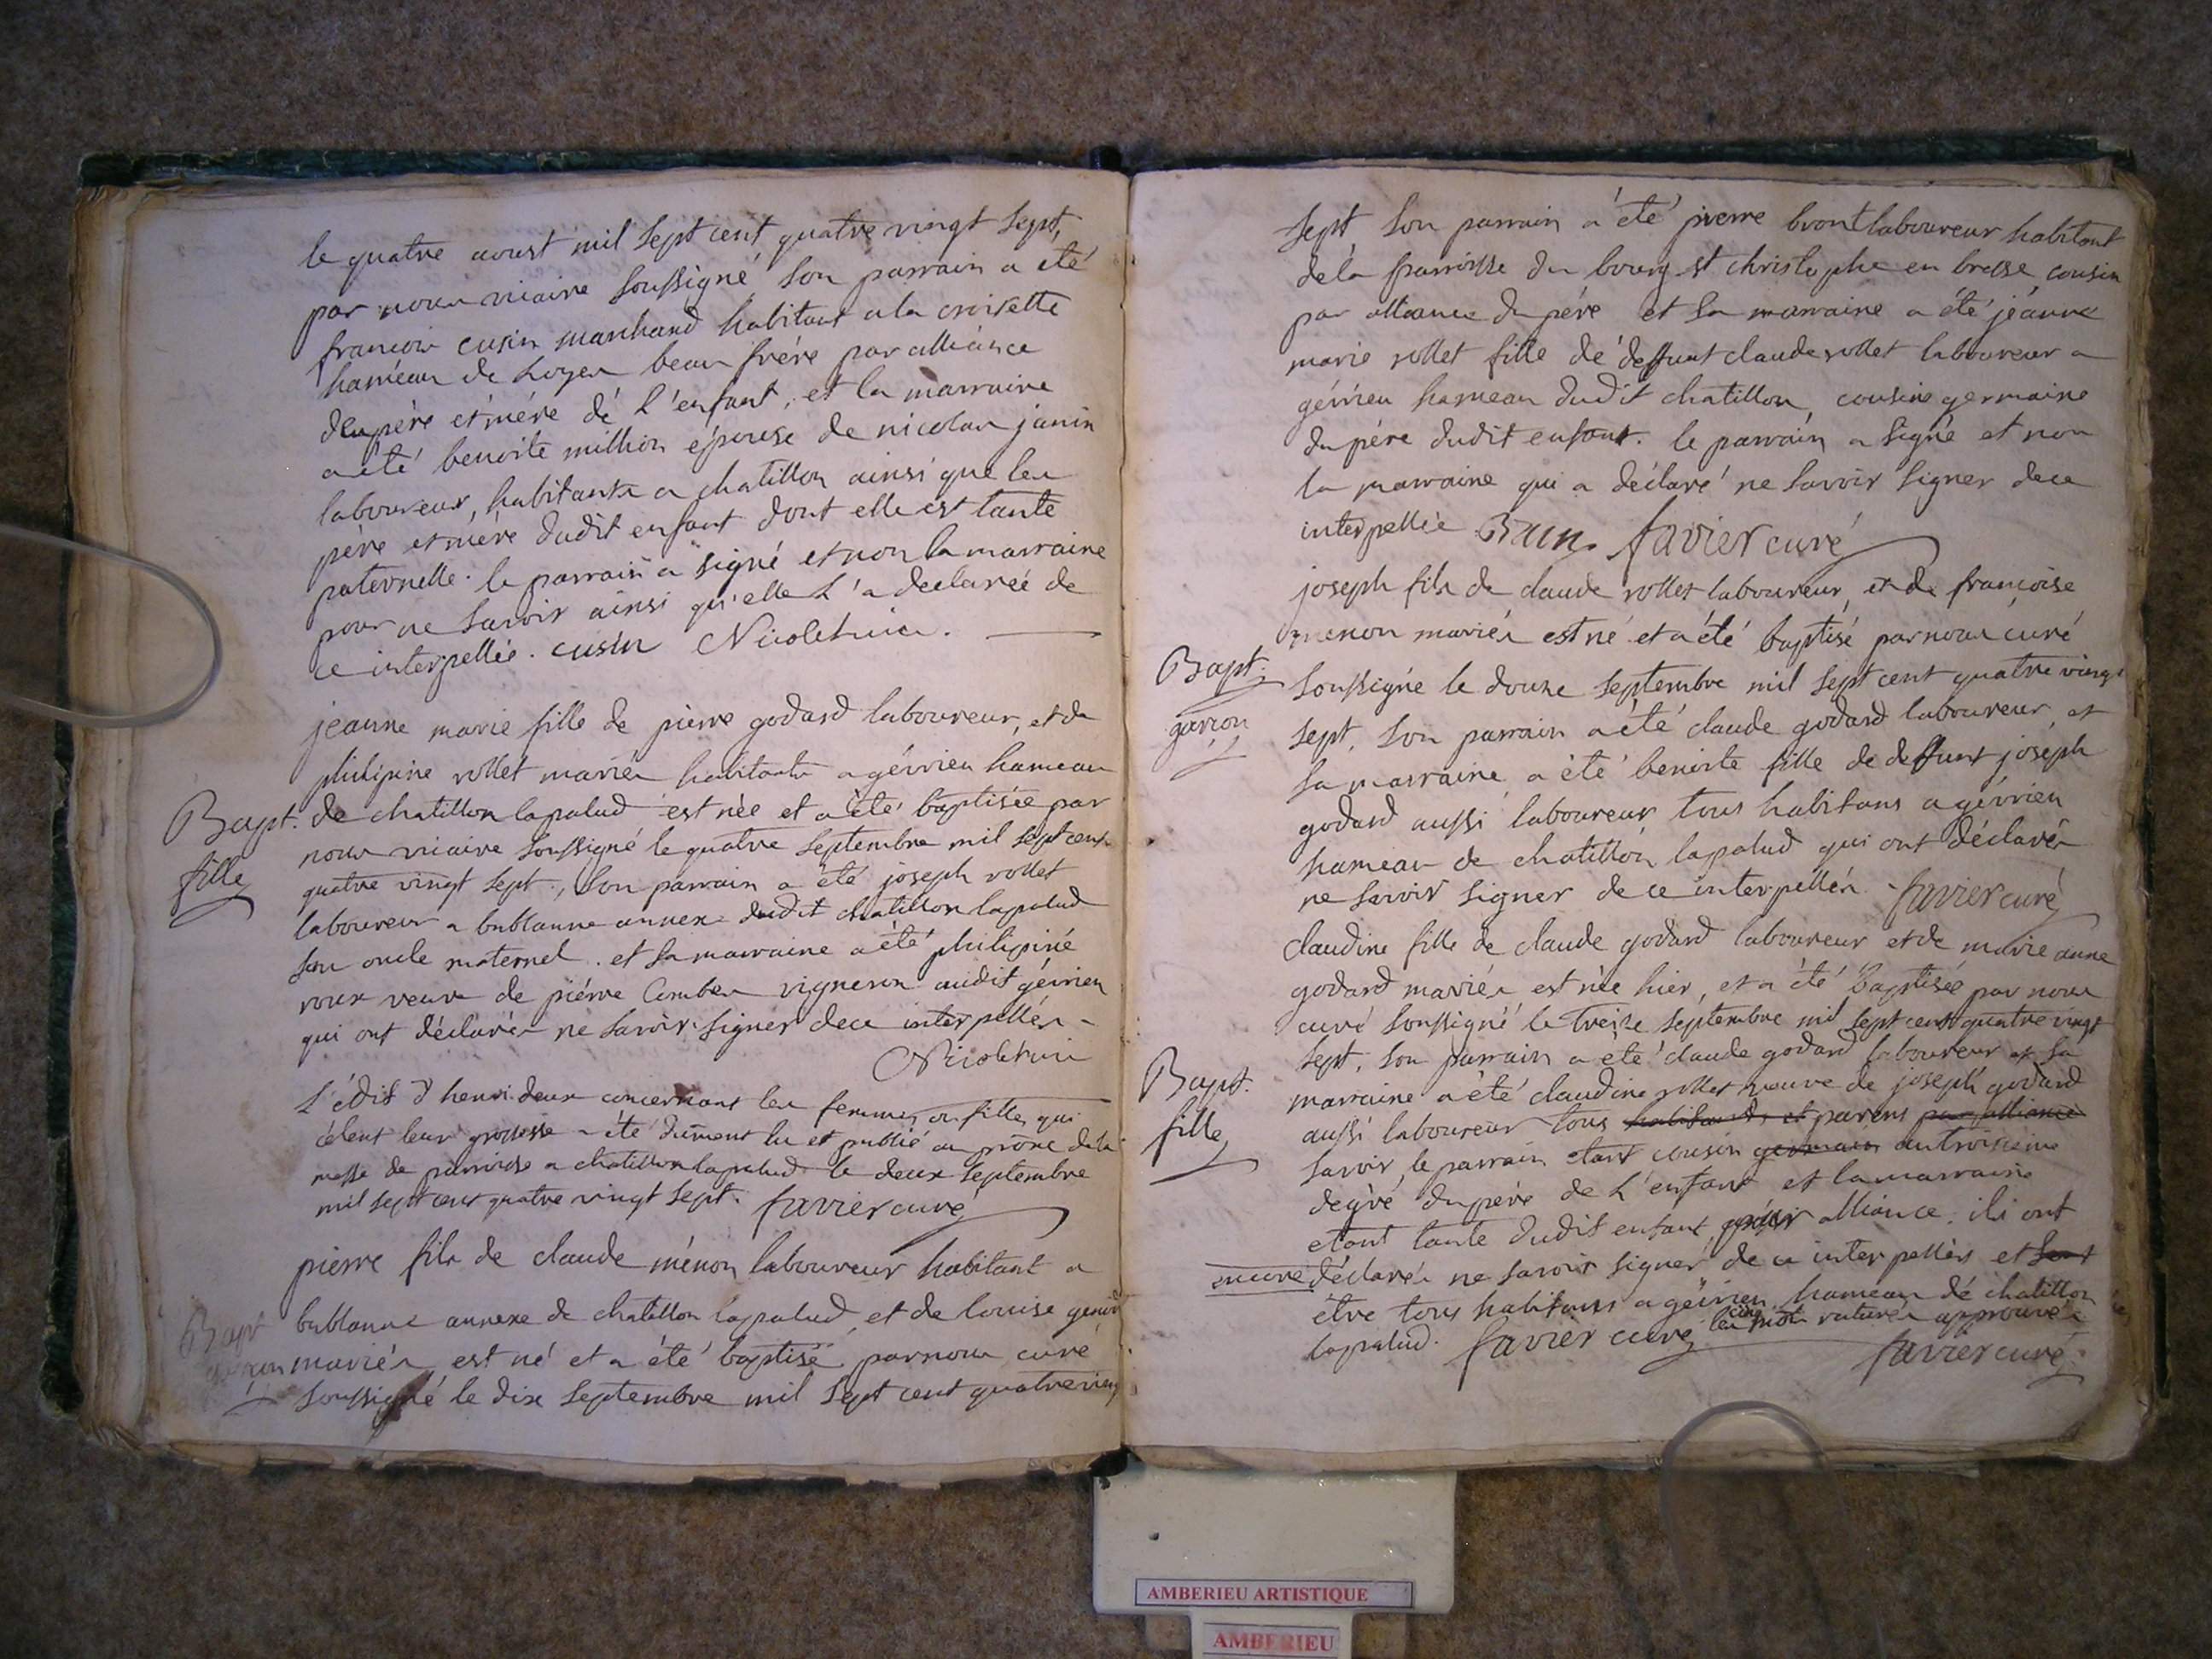 le quatre aoust mil sept cent quatre vingt sept,
par nous vicaire soussigné son parrain a été
francois cusin marchand habitant a la croisette
haméau de Loyes beau frére par alliance
du pére et mére dé l'enfant, et la marraine
a été benoite million épouse de nicolas janin
laboureur, habitants a chatillon ainsi que les
pére et mére dudit enfant dont elle est tante
paternelle. le parrain a signé et non la marraine
pour ne savoir ainsi qu'elle l'a declareé de
ce interpellée. cusin
jeanne marie fille de pierre godard laboureur, et de
philipine rollet mariés habitants a gévrieu hameau
Bapt. de chatillon lapalud est née et a été baptisée par
nous vicaire soussigné le quatre septembre mil sept cent
fille quatre vingt sept., son parrain a été joseph rollet
laboureur a bublanne annexe dudit chatillon lapalud
son oncle maternel. et sa marraine a été philipine
roux veuve de piérre Combes vigneron audit gévrieu
qui ont déclarés ne savoir signer de ce interpellés -
L'édit d'henri deux concernant les femmes ou filles qui
célent leur grossesse a été dument lu et publié au prône de la
messe de parroisse a chatillon lapalud le deux septembre
mil sept cent quatre vingt sept. favier curé
pierre fils de claude ménon laboureur habitant a
Bapt bublanne annexe de chatillon lapalud, et de louise
garçon mariés est né et a été baptisé par nous curé
soussigné le dix septembre mil sept cent quatre ving
sept son parrain a été pierre laboureur habitant
de la parroisse du bourg st christophe en bresse, cousin
par alliance du pére et sa marraine a été jéanne
marie rollet fille dé deffunt claude rollet laboureur a
gévrieu hameau dudit chatillon, cousine germaine
du pére dudit enfant. le parrain a signé et non
la marraine qui a déclaré ne savoir signer de ce
interpellée favier curé
joseph fils de claude rollet laboureur, et de françoise
menon mariés est né et a été baptisé par nous curé
Bapt. soussigné le douze septembre mil sept cent quatre vingt
garçon sept, son parrain a été claude godard laboureur, et
sa marraine a été benoite fille de deffunt joséph
godard aussi laboureur tous habitans a gévrieu
hameau de chatillon lapalud qui ont déclarés
ne savoir signer de ce interpellés. favier curé
claudine fille de claude godard laboureur et de marie anne
godard mariés est née hier, et a été baptisée par nous
curé soussigné le treize septembre mil sept cent quatre vingt
sept, son parrain a été claude godard laboureur et sa
Bapt. marraine a été claudine rollet veuve de joseph godard
fille aussi laboureur tous habitants et parens par alliance
savoir le parrain etant cousin germain au troisieme
degré du pére de l'enfant et la marraine
etant tante dudit enfant alliance. ils ont
encore déclarés ne savoir signer de ce interpellés et sont
être tous habitans a gévrieu hameau dé chatillon
lapalud. favier curé les cinq mots raturés approuvés
favier curé
AMBERIEU ARTISTIQUE
AMBERIEU